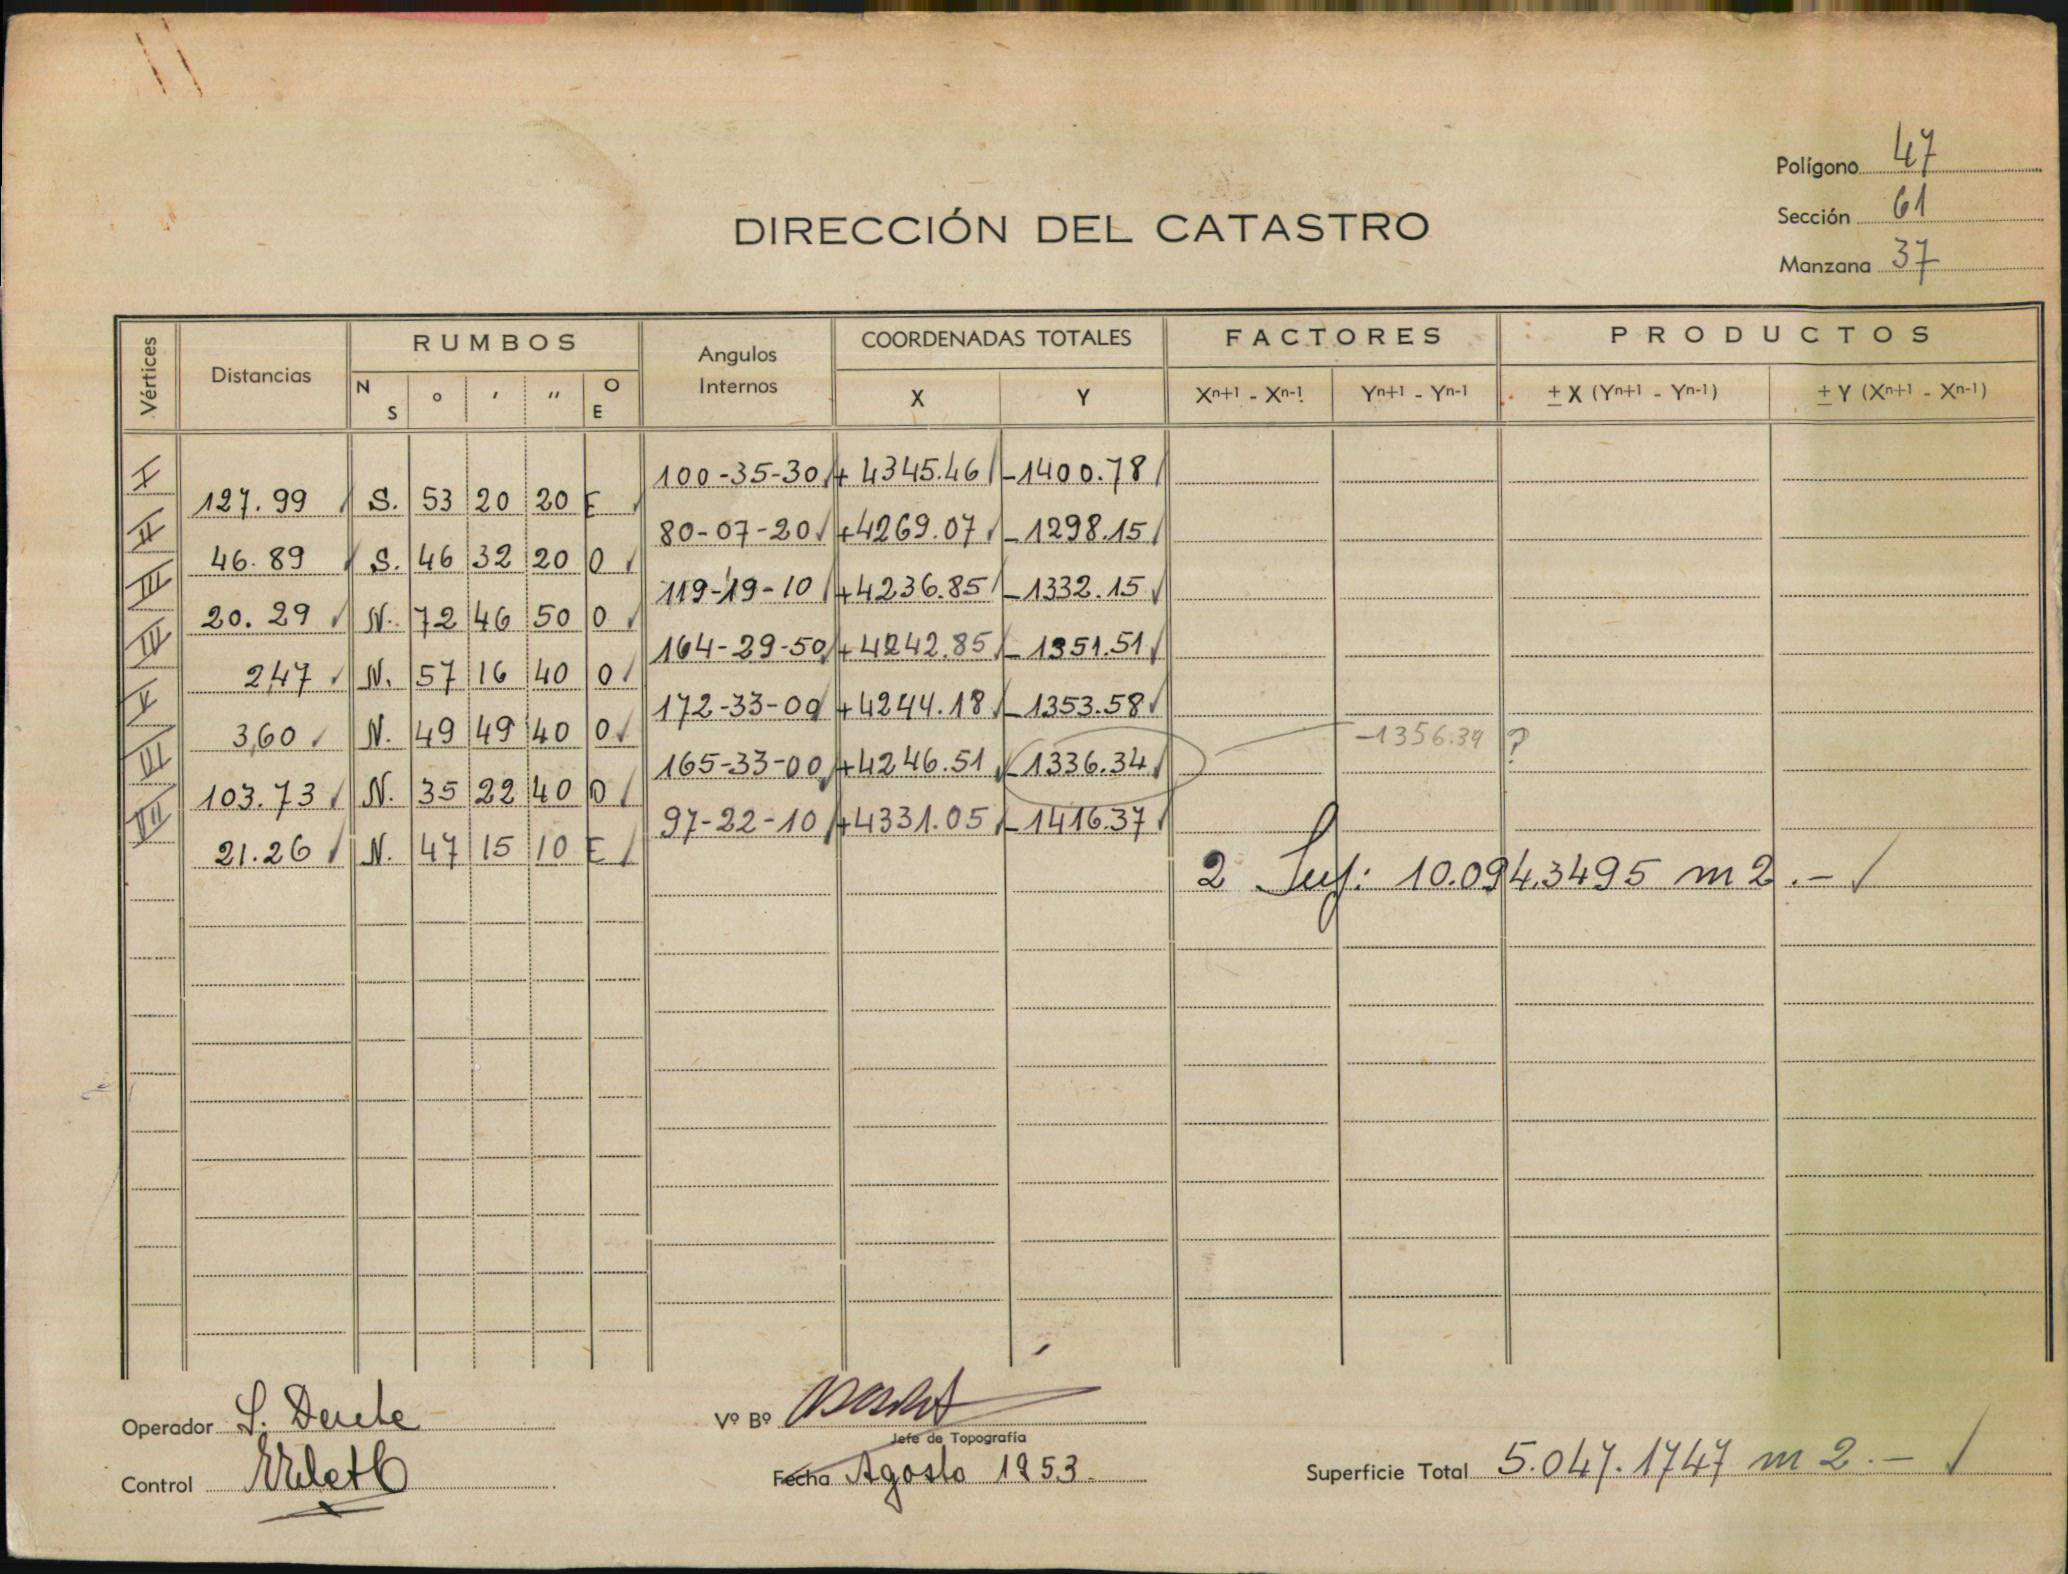 Polígono 47
Sección 61
DIRECCIÓN DEL CATASTRO
Manzana 37
Vértices Distancias RUMBOS Angulos Internos COORDENADAS TOTALES FACTORES PRODUCTOS
N S ° ' '' O E X Y Xn+1 - Xn-1 Yn+1 - Yn-1 ± X (Yn+1 - Yn-1) ± Y (Xn+1 - Xn-1)
I 100-35-30 + 4345.46 -1400.78
127.99 S. 53 20 20 E
II 80-07-20 +4269.07 -1298.15
46.89 S. 46 32 20 O
III 119-19-10 +4236.85 -1332.15
20.29 N. 72 46 50 O
IV 164-29-50 +4242.85 -1351.51
2,47 N. 57 16 40 O
V 172-33-00 +4244.18 -1353.58
3,60 N. 49 49 40 O -1356.34 ?
165-33-00 +4246.51 -1336.34
103.73 N. 35 22 40 O
VII 97-22-10 +4331.05 -1416.37
21.26 N. 47 15 10 E
2 Sup: 10.094.3495 m2.-
Operador Vº Bº
Jefe de Topografía
Control Fecha Agosto 1953. Superficie Total 5.047.1747 m2.-